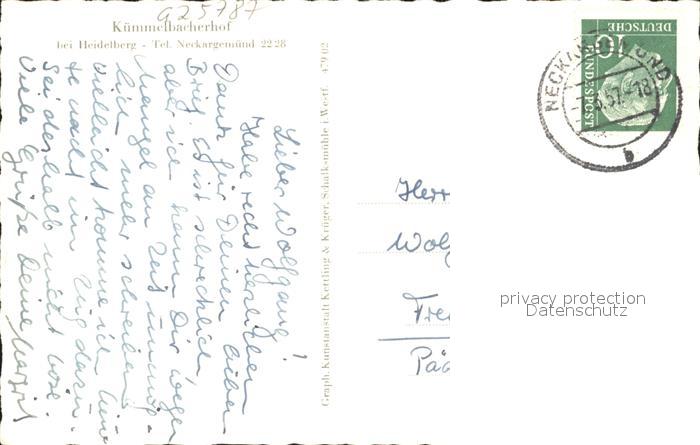 925787
Kümmelbacherhof
bei Heidelberg - Tel. Neckargemünd 2228
Lieber Wolfgang!
Habe recht herzlichen
Dank für Deinen lieben
Brief. Es ist schrecklich
aber ich kann Dir wegen
Mangel an Zeit unmög-
lich mehr schreiben
vielleicht komme ich heu-
te nacht im Zug dazu.
Sei deshalb nicht böse.
Viele Grüße Deine Margrit
Graph. Kunstanstalt Kettling & Krüger, Schalksmühle i. Westf. 479/02
DEUTSCHE
BUNDESPOST
10
57.-18
b
Herr
Wolf
Päd
privacy protection
Datenschutz